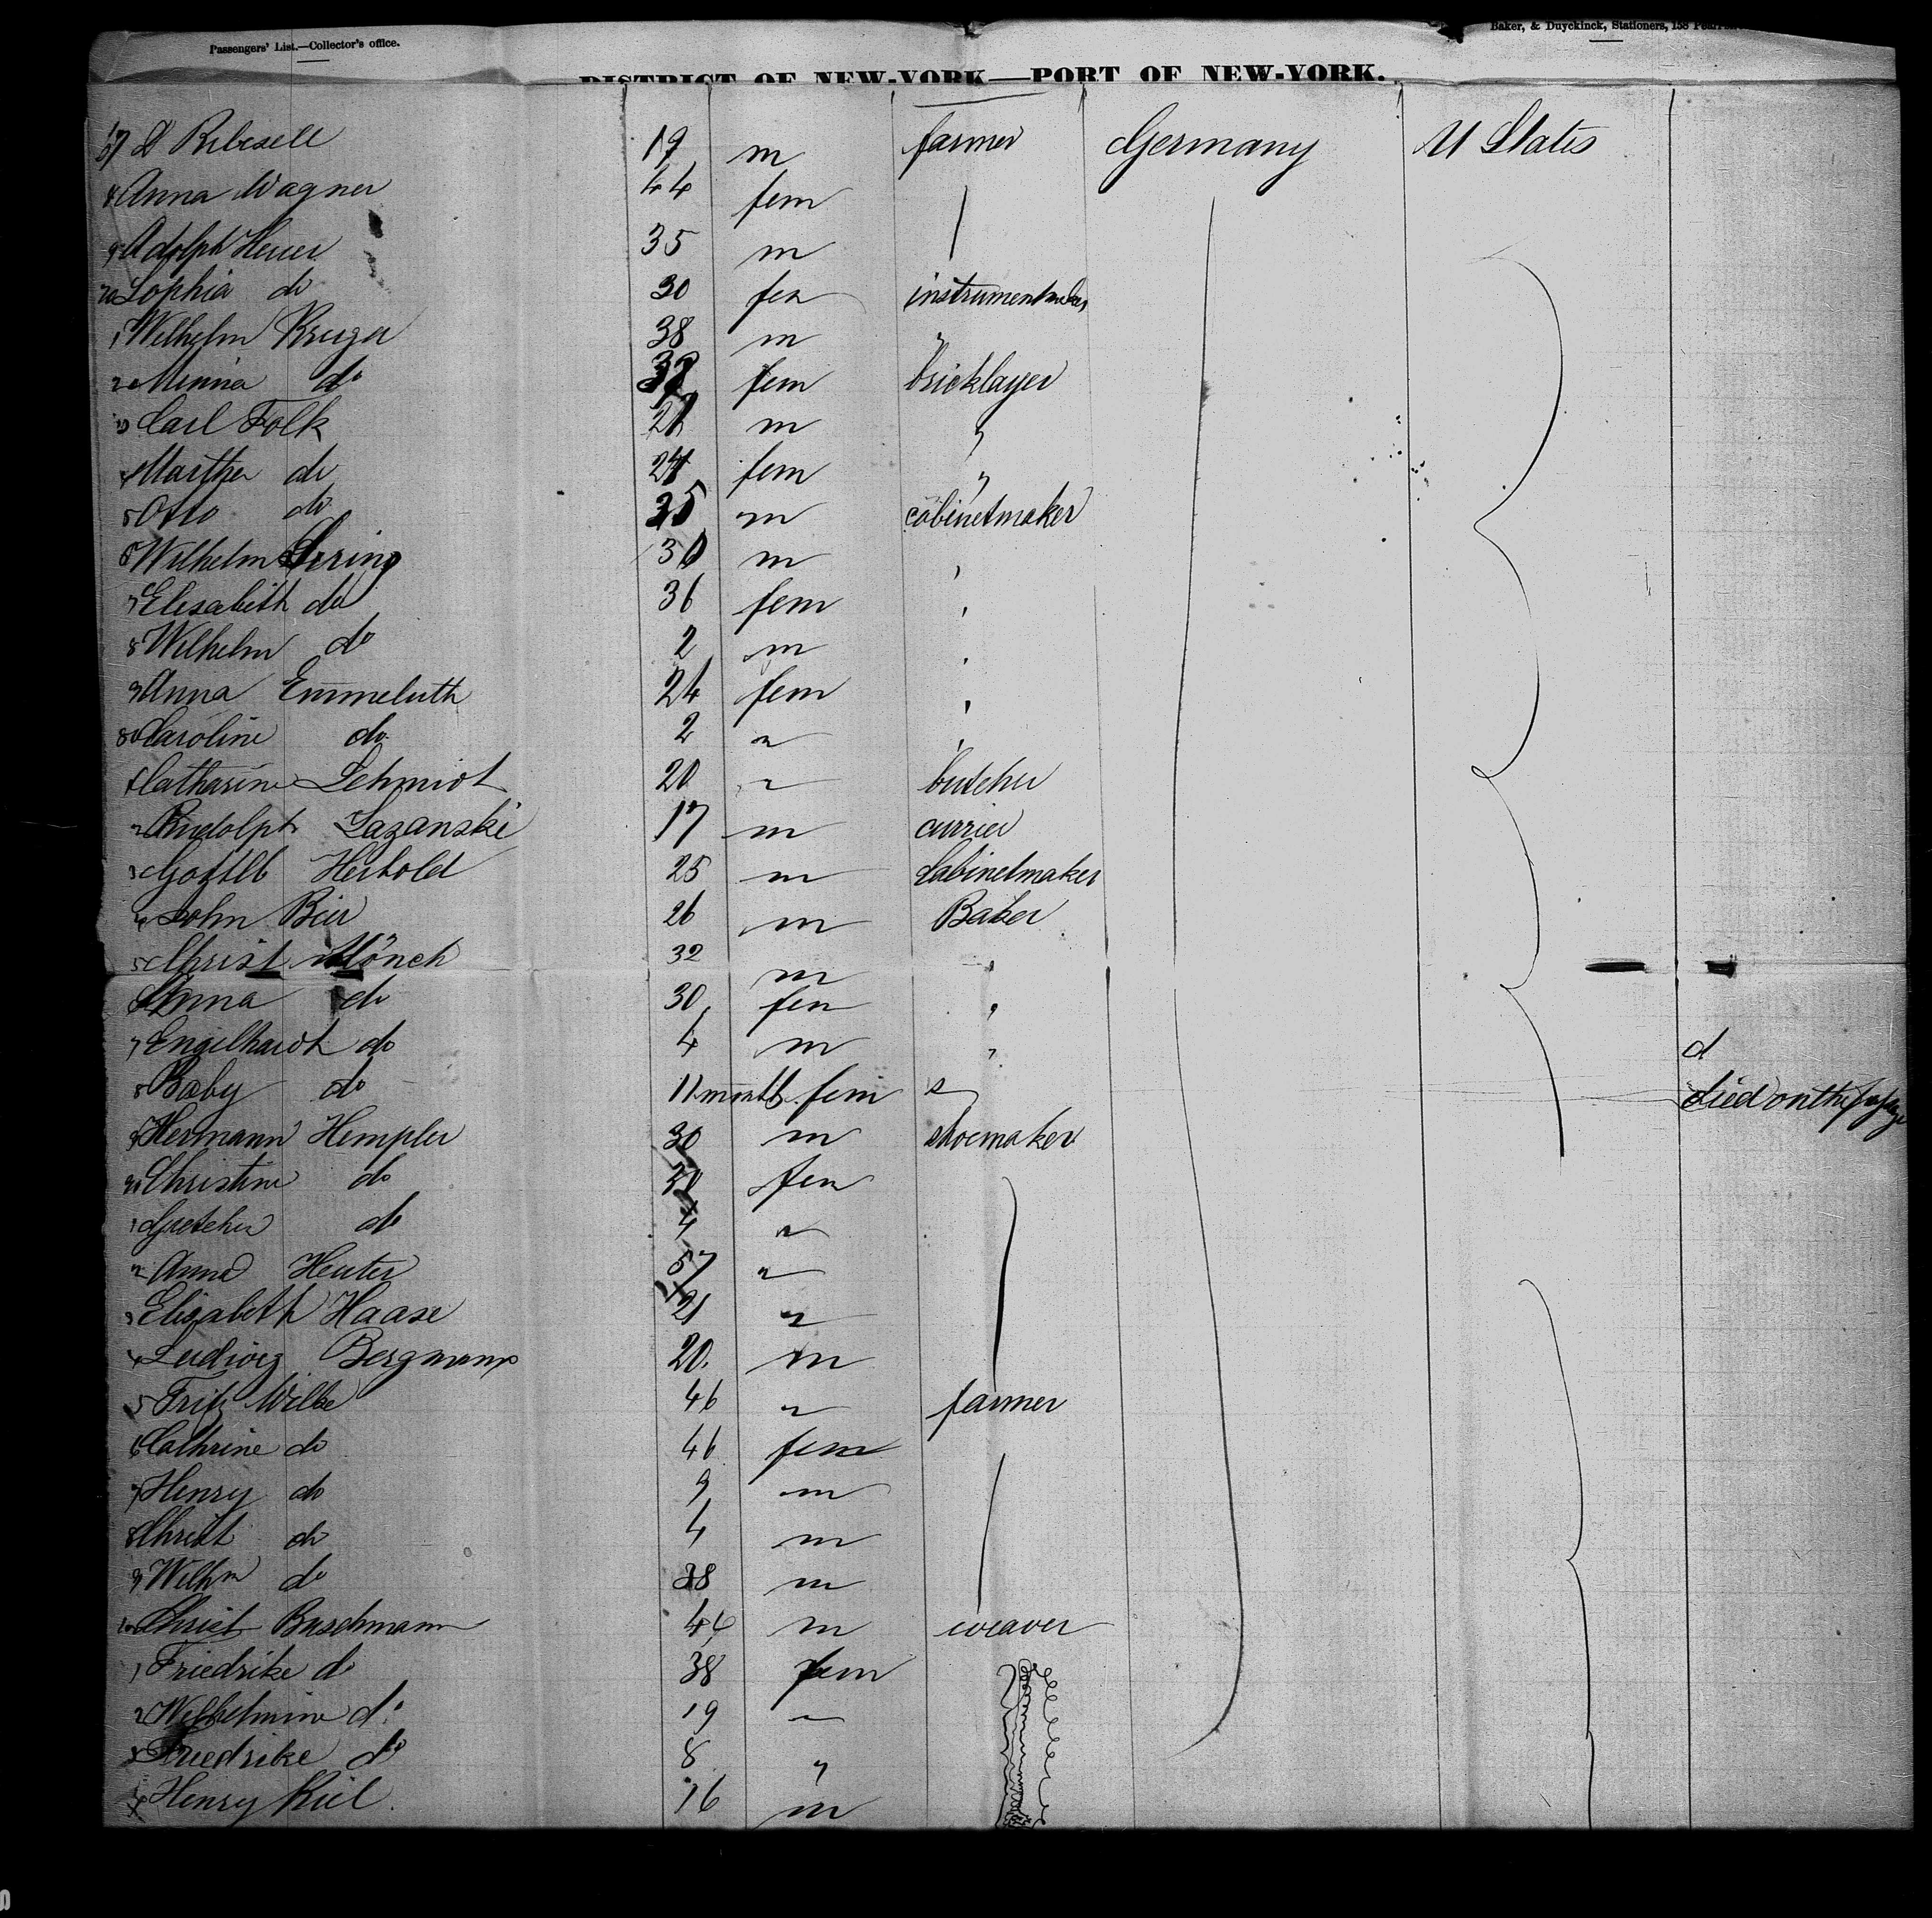 Passengers' List.—Collector's office.
Baker, & Duyckinck, Stationers, 158
DISTRICT OF NEW-YORK—PORT OF NEW-YORK.
67 D Ribesell 19 m farmer Germany U States
8 Anna Wagner 44 fem
9 Adolph Heuer 35 m
70 Sophia do 30 fem instrumentmaker
1 Wilhelm Kruger 38 m "
2 Minna do fem bricklayer
3 Carl Folk m "
4 Martha do fem "
5 Otto do m cabinetmaker
6 Wilhelm m
7 Elisabeth do 36 fem
8 Wilhelm do 2 m
9 Anna Emmeluth 24 fem
80 Caroline do 2 "
1 Catharine Schmidt 20 " butcher
2 Rudolph Lazanski 17 m currier
3 Gottlb Herbold 25 m Cabinetmaker
4 John Bier 26 m Baker
5 Christ Mönch 32 m "
6 Anna do 30 fem "
7 Engelhardt do 4 m " d
8 Baby do 11 month fem s died on the
9 Hermann Hempler 30 m shoemaker
90 Christine do fem
1 Gretchen do 4 "
2 Anna Heuter 57 "
3 Elisabeth Haase 21 "
4 Ludwig Bergmann 20 m
5 Fritz Wilke 46 " farmer
6 Cathrine do 46 fem
7 Henry do 9 m
8 Christ do 4 m
9 Wilhm do 38 m
Christ Buschmann m weaver
1 Friedrike do 38 fem
2 Wilhelmine do 19 "
3 Friedrike do 8 "
4 Henry Kiel 16 m